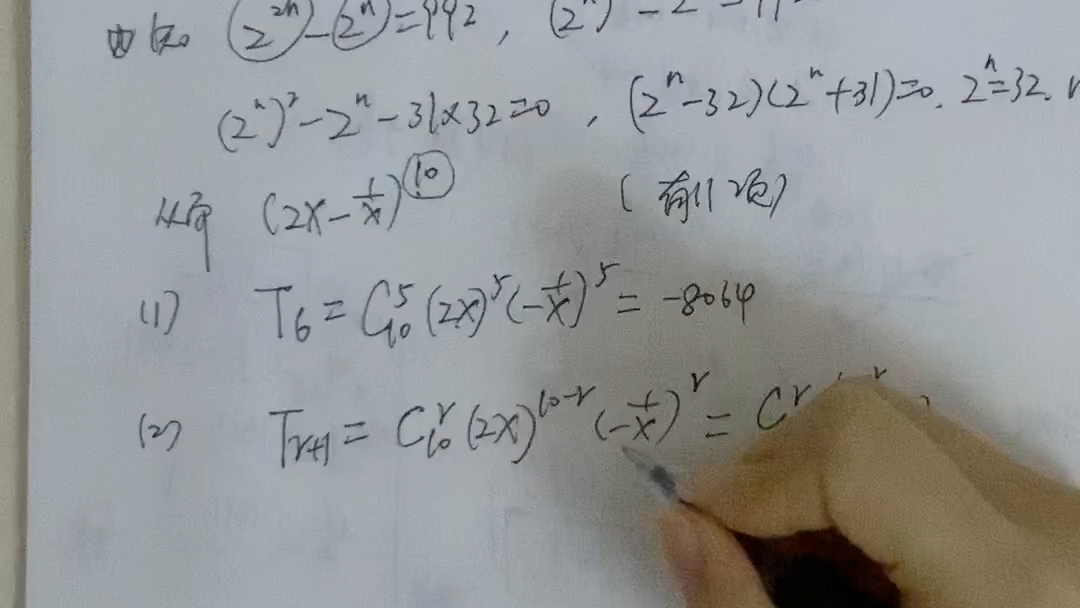 由知 (2²ⁿ)-(2ⁿ)=992, (2ⁿ)²-2
(2ⁿ)²-2ⁿ-31×32=0, (2ⁿ-32)(2ⁿ+31)=0. 2ⁿ=32.
从而 (2x-1/x)¹⁰ (有11项)
(1) T₆=C₁₀⁵(2x)⁵(-1/x)⁵=-8064
(2) Tᵣ₊₁=C₁₀ʳ(2x)¹⁰⁻ʳ(-1/x)ʳ=C